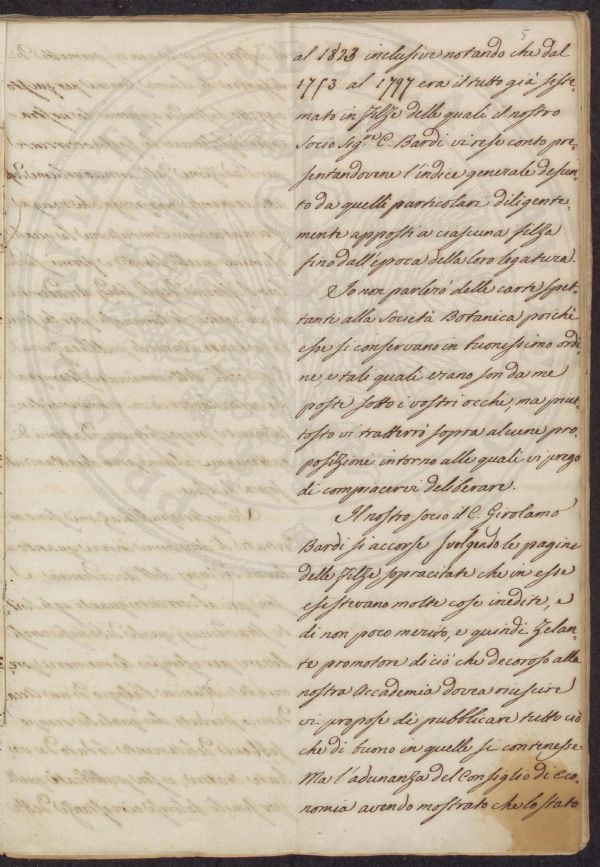 5
al 1823 inclusive notando che dal
1753 al 1797 era il tutto già siste-
mato in Filze delle quali il nostro
Socio Sigre C. Bardi vi rese conto pre-
sentandovene l'indice generale desun-
to da quelli particolari diligente-
mente apposti a ciascuna filza
fino dall'epoca della loro legatura.
Io non parlerò delle carte spet-
tanti alla Società Botanica poichè
esse si conservano in buonissimo ordi-
ne, e tali quali erano son da me
poste sotto i vostri occhi, ma piut-
tosto vi tratterrò sopra alcune pro-
posizioni intorno alle quali vi prego
di compiacervi deliberare.
Il nostro socio il C. Girolamo
Bardi si accorse svolgendo le pagine
delle Filze sopracitate che in esse
esistevano molte cose inedite, e
di non poco merito, e quindi Zelan-
te promotore di ciò che decoroso alla
nostra Accademia dovea riuscire
vi propose di pubblicare tutto ciò
che di buono in quelle si contenesse
Ma l'adunanza del Consiglio di Eco-
nomia avendo mostrato che lo stato